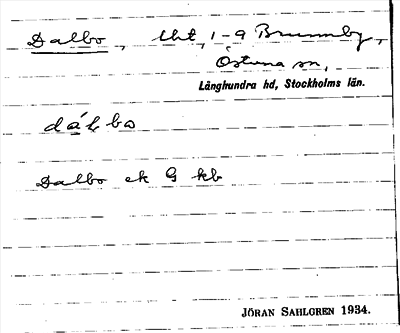 Dalbo, lht, 1-9 Brunnby,
Östuna sn,
Långhundra hd, Stockholms län.
dálbo
Dalbo ek G kb
JÖRAN SAHLGREN 1934.